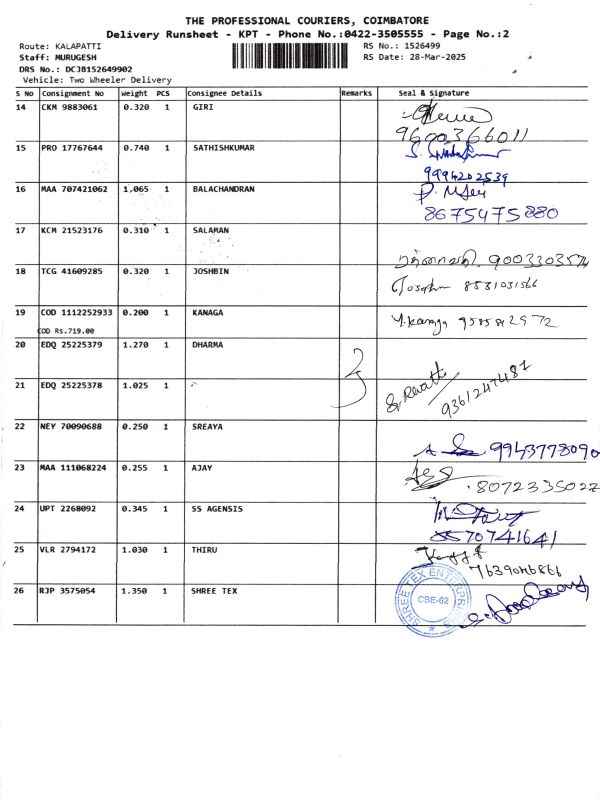 THE PROFESSIONAL COURIERS, COIMBATORE
Delivery Runsheet - KPT - Phone No.:0422-3505555 - Page No.:2
Route: KALAPATTI RS No.: 1526499
Staff: MURUGESH RS Date: 28-Mar-2025
DRS No.: DCJB152649902
Vehicle: Two Wheeler Delivery
S No Consignment No Weight PCS Consignee Details Remarks Seal & Signature
14 CKM 9883061 0.320 1 GIRI
9600366011
15 PRO 17767644 0.740 1 SATHISHKUMAR
9994202539
16 MAA 707421062 1,065 1 BALACHANDRAN
8675475880
17 KCM 21523176 0.310 1 SALAMAN
18 TCG 41609285 0.320 1 JOSHBIN
8531031566
19 COD 1112252933 0.200 1 KANAGA
COD Rs.719.00
Y.Kanaga 9585812972
20 EDQ 25225379 1.270 1 DHARMA
21 EDQ 25225378 1.025 1
Revathi 9361247487
22 NEY 70090688 0.250 1 SREAYA
9943778090
23 MAA 111068224 0.255 1 AJAY
24 UPT 2268092 0.345 1 SS AGENSIS
25 VLR 2794172 1.030 1 THIRU
26 RJP 3575054 1.350 1 SHREE TEX
SHREE TEX ENTERPRISES
CBE-62